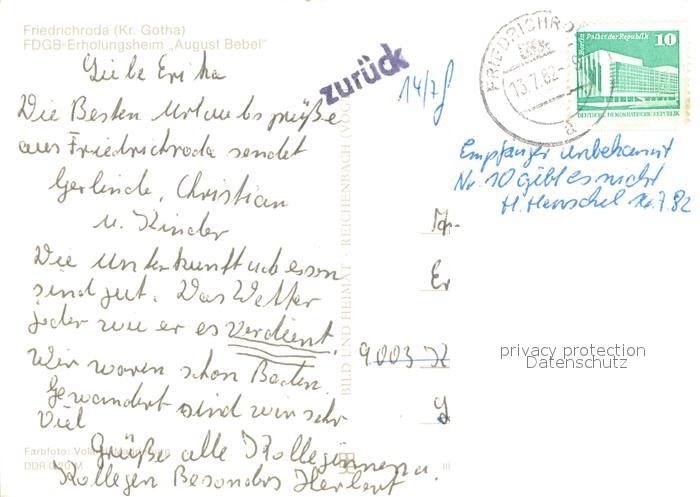 Friedrichroda (Kr. Gotha)
FDGB-Erholungsheim „August Bebel"
Liebe Erika
Die Besten Urlaubsgrüße
aus Friedrichroda sendet
Gerlinde, Christian
u. Kinder
Die Unterkunft und essen
sind gut. Das Wetter
jeder wie er es Verdient.
Wir waren schon Baden.
Gewandert sind wir sehr
Viel
Grüße alle Kolleginnen u.
Kollegen Besonders Herbert
Farbfoto:
DDR 0,20 M
BILD UND HEIMAT · REICHENBACH (VOGTL
zurück
14/7
FRIEDRICHRODA
13.7.82
a
Berlin, Palast der Republik
10
DEUTSCHE DEMOKRATISCHE REPUBLIK
Empfänger unbekannt
Nr. 10 gibt es nicht
H. Henschel 7.82
Er
9003 K
privacy protection
Datenschutz